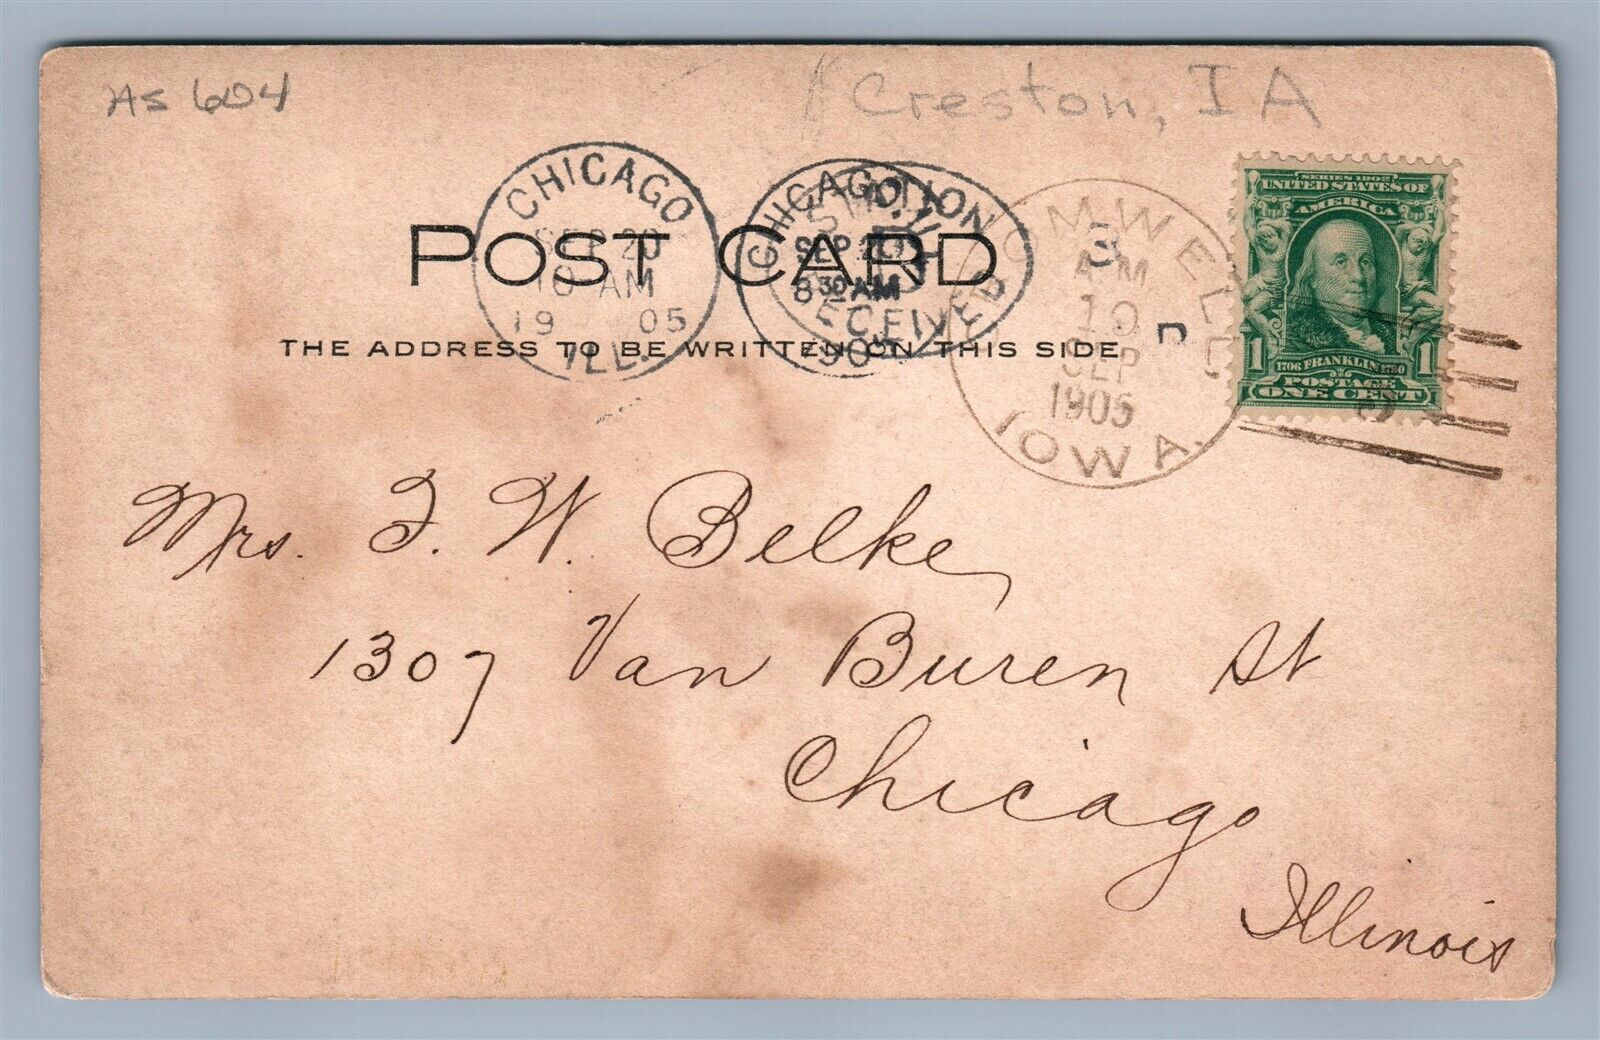 As 604
Creston, IA
CHICAGO
SEP 20
10 AM
19 05
ILL.
CHICAGO, ILL.
SEP 20
8 30 AM
RECEIVED
OMWELL
3
A.M.
19
SEP
1905
IOWA.
SERIES 1902
UNITED STATES OF
AMERICA
1706 FRANKLIN 1790
1 POSTAGE 1
ONE CENT
POST CARD
THE ADDRESS TO BE WRITTEN ON THIS SIDE
Mrs. F. W. Belke,
1307 Van Buren St
Chicago
Illinois